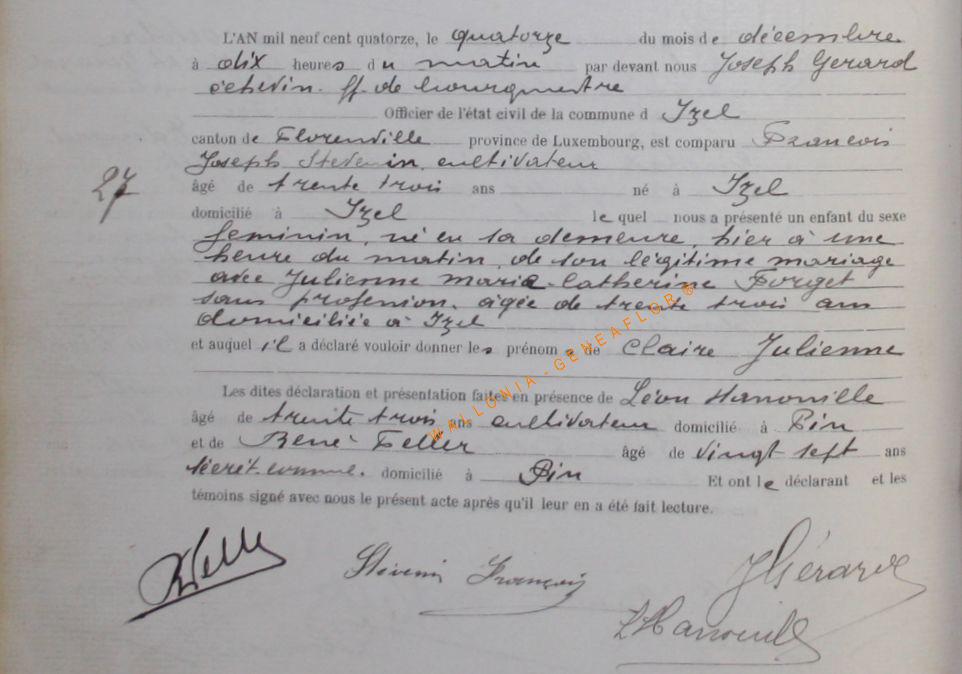 L'AN mil neuf cent quatorze, le quatorze du mois de décembre
à dix heures du matin par devant nous Joseph Gerard
échevin. ff. de bourgmestre
Officier de l'état civil de la commune d Izel
canton de Florenville province de Luxembourg, est comparu François
Joseph Stevenin, cultivateur
âgé de trente trois ans né à Izel
27
domicilié à Izel lequel nous a présenté un enfant du sexe
feminin, né en sa demeure, hier à une
heure du matin, de son légitime mariage
avec Julienne Marie Catherine Forget
sans profession, agée de trente trois ans
domiciliée à Izel
et auquel il a déclaré vouloir donner les prénoms de Claire Julienne
Les dites déclaration et présentation faites en présence de Léon Hanouille
âgé de trente trois ans cultivateur domicilié à Pin
et de René Feller âgé de vingt sept ans
secrét. commu. domicilié à Pin Et ont le déclarant et les
témoins signé avec nous le présent acte après qu'il leur en a été fait lecture.
RFeller
Stévenin François
JGérard
LHanouille
WALLONIA - GENEAFLOR®